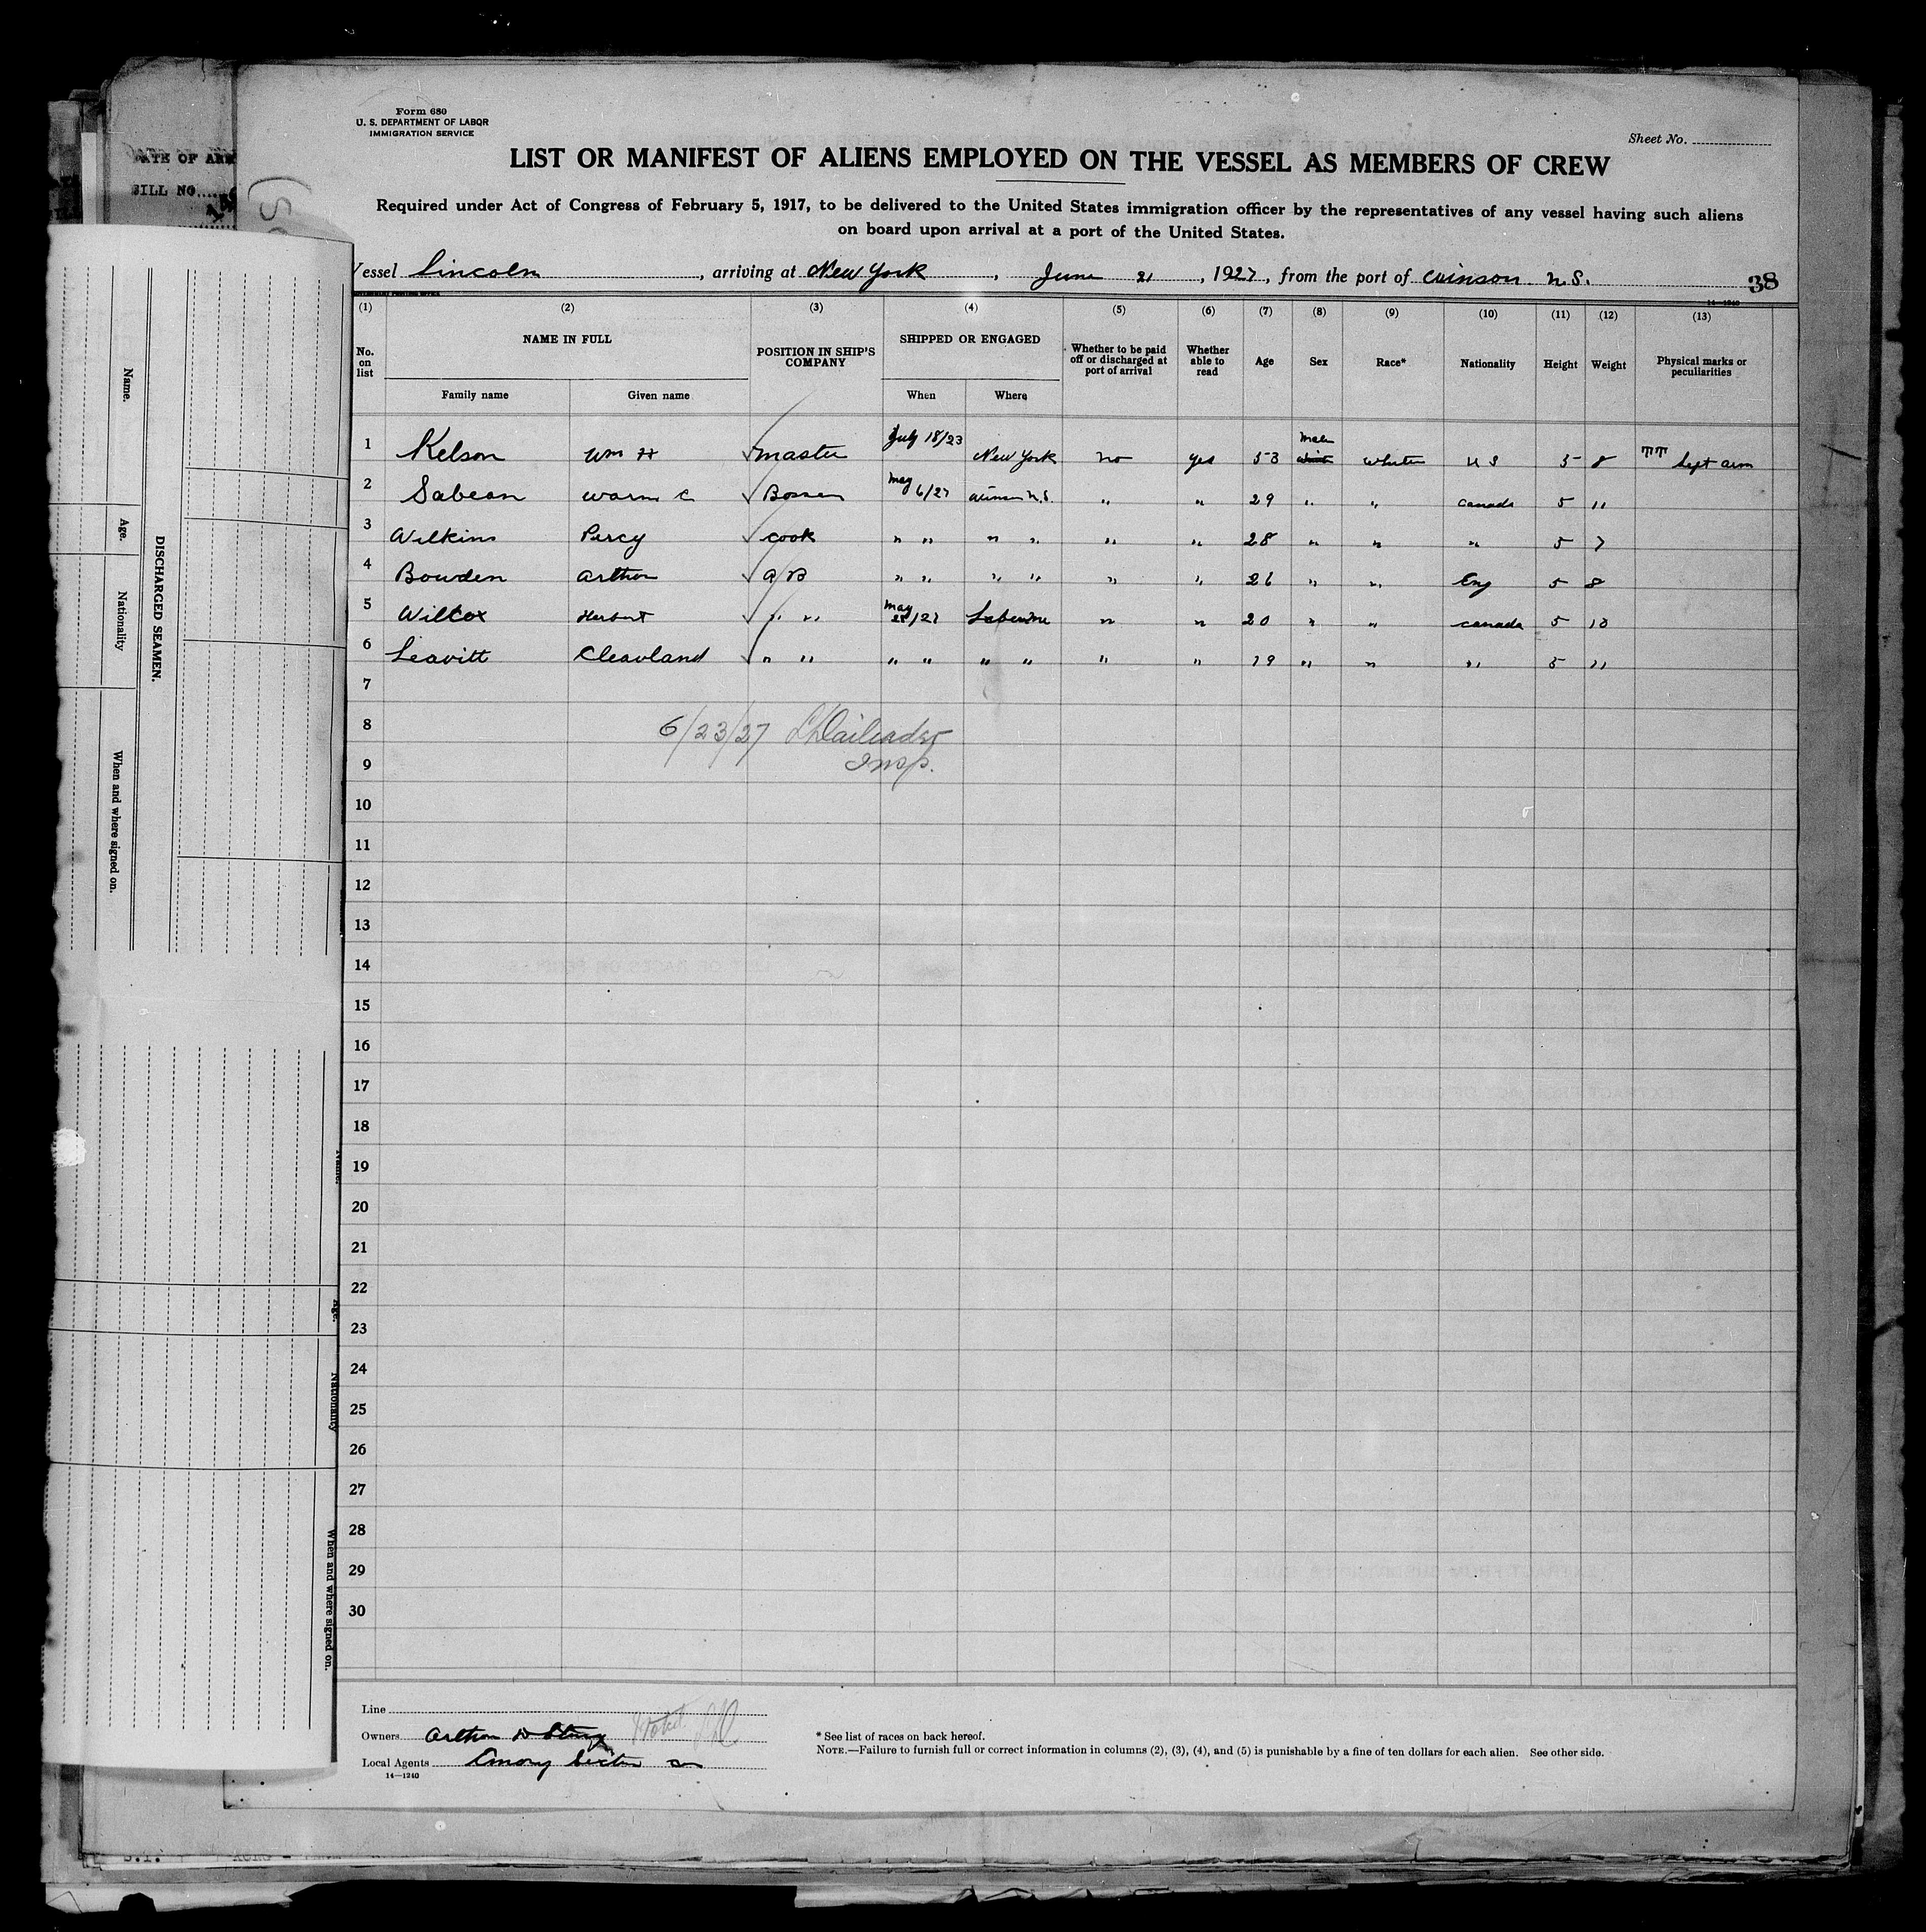 Form 680
U. S. DEPARTMENT OF LABOR
IMMIGRATION SERVICE
Sheet No.
LIST OR MANIFEST OF ALIENS EMPLOYED ON THE VESSEL AS MEMBERS OF CREW
Required under Act of Congress of February 5, 1917, to be delivered to the United States immigration officer by the representatives of any vessel having such aliens
on board upon arrival at a port of the United States.
Vessel Lincoln, arriving at New York, June 21, 1927, from the port of N.S.
38
14—1240
(1) (2) (3) (4) (5) (6) (7) (8) (9) (10) (11) (12) (13)
No. on list NAME IN FULL POSITION IN SHIP'S COMPANY SHIPPED OR ENGAGED Whether to be paid off or discharged at port of arrival Whether able to read Age Sex Race* Nationality Height Weight Physical marks or peculiarities
Family name Given name When Where
1 Kelson Wm H master July 18/23 New York no yes 53 male white U S 5 8 TT left arm
2 Sabean C May 6/27 N.S. " " 29 " " Canada 5 11
3 Wilkins Percy cook " " " " " " 28 " " " 5 7
4 Bowden Arthur A B " " " " " " 26 " " Eng 5 8
5 Wilcox Herbert " " May /27 " " 20 " " Canada 5 10
6 Leavitt Cleavland " " " " " " " " 19 " " " 5 11
7
8
6/23/27
Insp.
9
10
11
12
13
14
15
16
17
18
19
20
21
22
23
24
25
26
27
28
29
30
Line
Owners Arthur
Local Agents
14—1240
* See list of races on back hereof.
NOTE.—Failure to furnish full or correct information in columns (2), (3), (4), and (5) is punishable by a fine of ten dollars for each alien. See other side.
DATE OF ARR
BILL NO.
DISCHARGED SEAMEN.
Name.
Age.
Nationality
When and where signed on.
Name.
Age.
Nationality
When and where signed on.